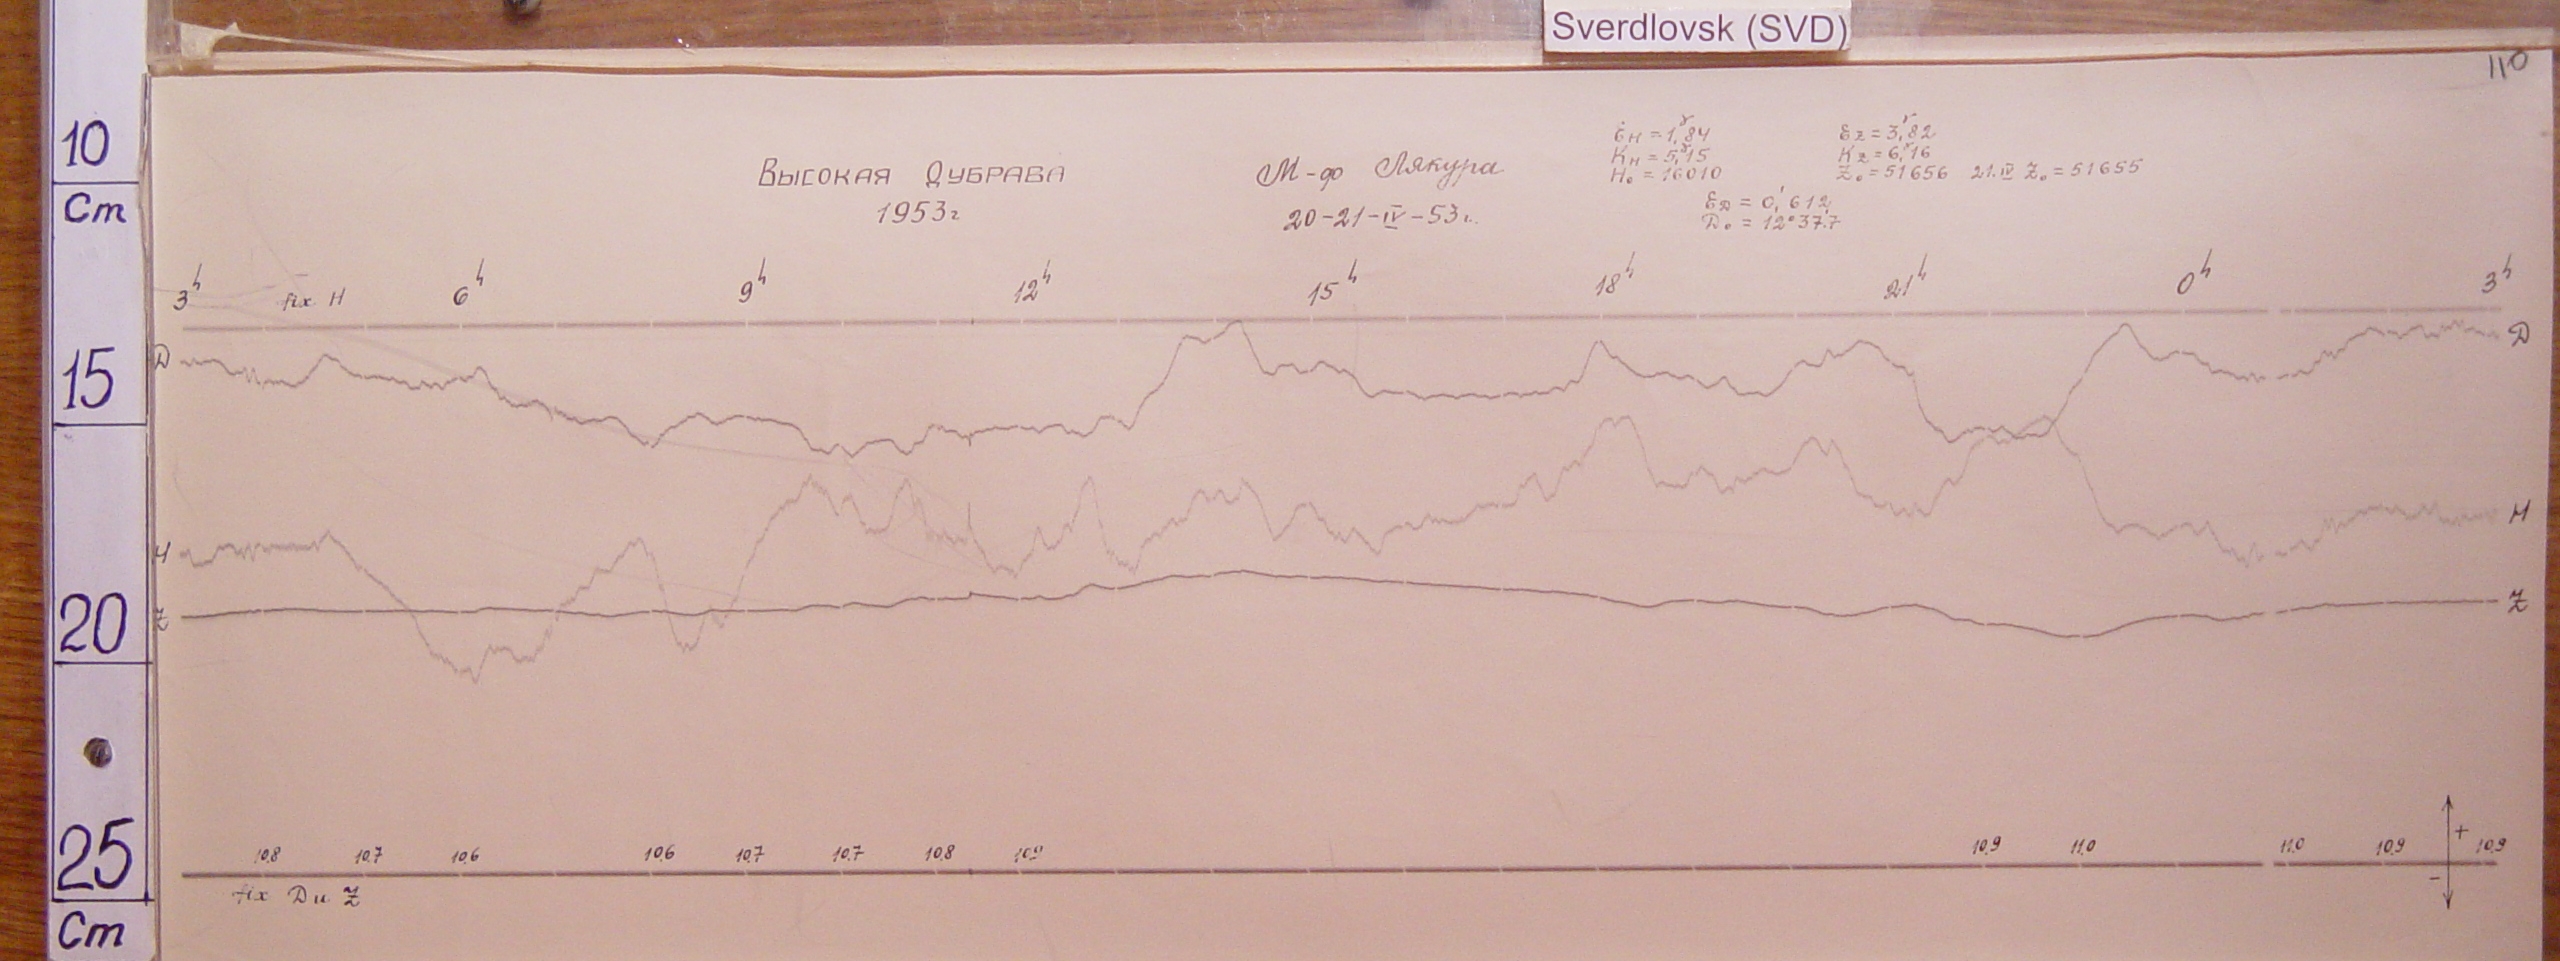 Sverdlovsk (SVD)
110
10
Cm
15
20
25
Cm
Высокая Дубрава
1953г
М-ф Лякура
20-21-IV-53г.
εH = 1,γ84
KH = 5,γ15
H₀ = 16010
εZ = 3,γ82
KZ = 6,γ16
Z₀ = 51656 21.IV Z₀ = 51655
εD = 0,′612
D₀ = 12°37,′7
3h 6h 9h 12h 15h 18h 21h 0h 3h
fix H
D D
H H
Z Z
10,8 10,7 10,6 10,6 10,7 10,7 10,8 10,9 10,9 11,0 11,0 10,9 10,9
+
-
fix D и Z